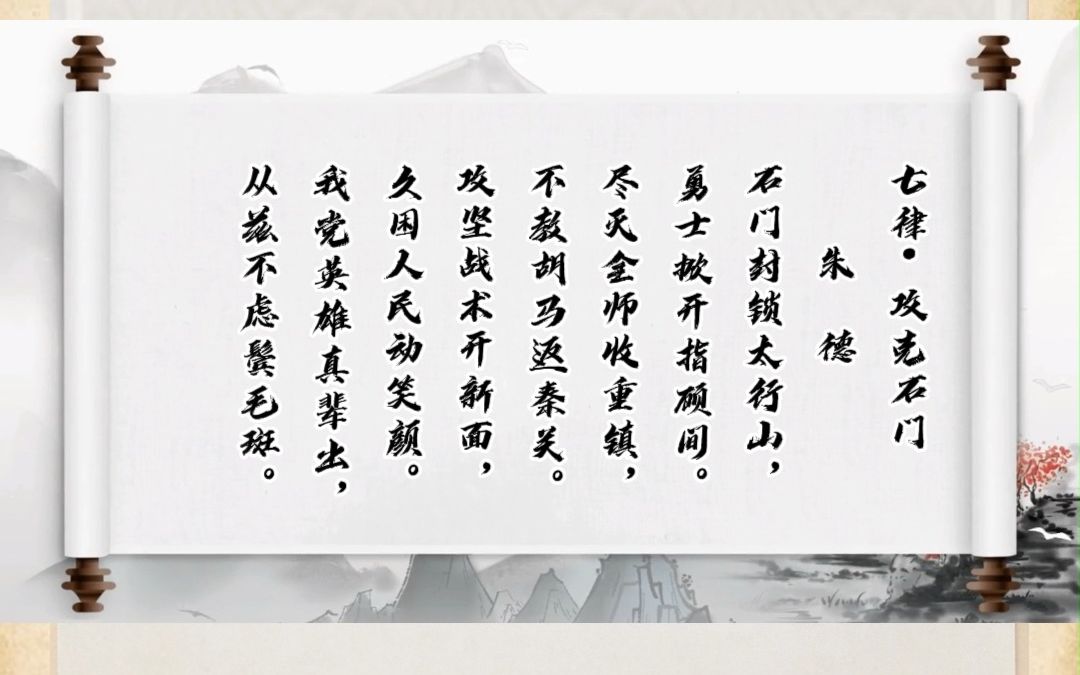 七律·攻克石门
朱德
石门封锁太行山，
勇士掀开指顾间。
尽灭全师收重镇，
不教胡马返秦关。
攻坚战术开新面，
久困人民动笑颜。
我党英雄真辈出，
从兹不虑鬓毛斑。